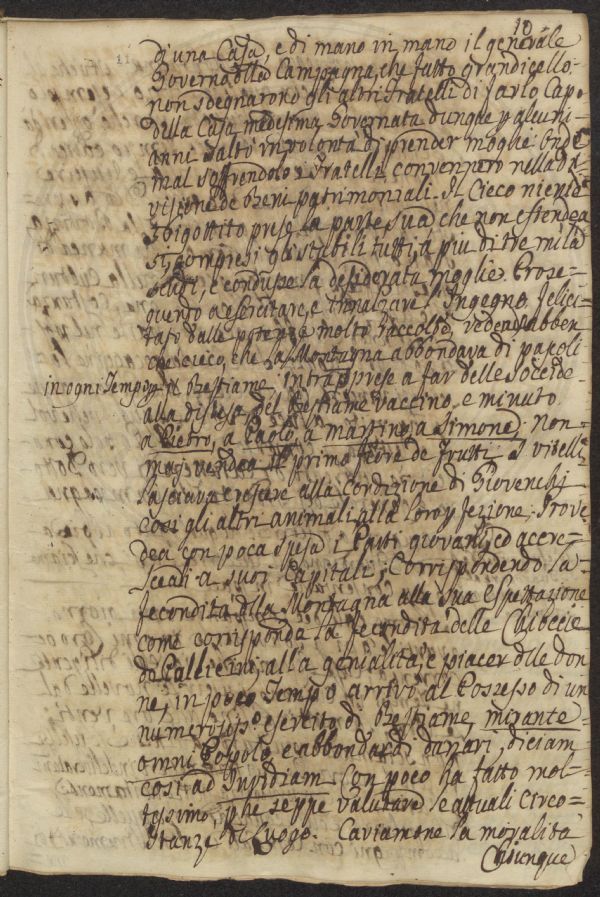 10
d'una Casa, e di mano in mano il generale
Governo dlla Campagna, che fatto grandicello
non sdegnarono gli altri fratelli di farlo Capo
della Casa medesima. Governata dunque p alcuni
anni saltò in volontà di prender moglie: Onde
mal soffrendolo i fratelli, convennero nella di-
visione de beni patrimoniali. Il Cieco niente
sbigottito prese la parte sua, che non estendea
si, compresi gli stabili tutti, a più di tre mila
scudi, e condusse la desiderata moglie. Prose-
guendo a esercitare, e innalzare l'Ingegno, felici-
tato dalle potenze molto raccolte, vedendo abben
che cieco, che la Montagna abbondava di pascoli
in ogni Tempo p il Bestiame, intraprese a far delle soccide
alla distesa del Bestiame vaccino, e minuto
a Pietro, a Paolo, a Martino, a Simone; non
mai vendea il primo fiore de frutti. I vitelli
lasciava crescere alla condizione di Giovenchi
così gli altri animali alla loro pfezione; Prove
dea con poca spesa i Parti giovani, ed acere-
sceali a suoi Capitali; Corrispondendo la
fecondità dlla Montagna alla sua Espettazione
come corrisponde la fecondità delle Chioccie
de Gallicini, alla genialità, e piacer dlle don
ne, in poco Tempo arrivò al Possesso di un
numerosisso esercito di Bestiame, mirante
omni Populo, e abbondar di danari, diciam
così ad Invidiam. Con poco ha fatto mol-
tissimo, pche seppe valutare le attuali circo-
stanze di Luogo. Caviamone la moralità
Chiunque